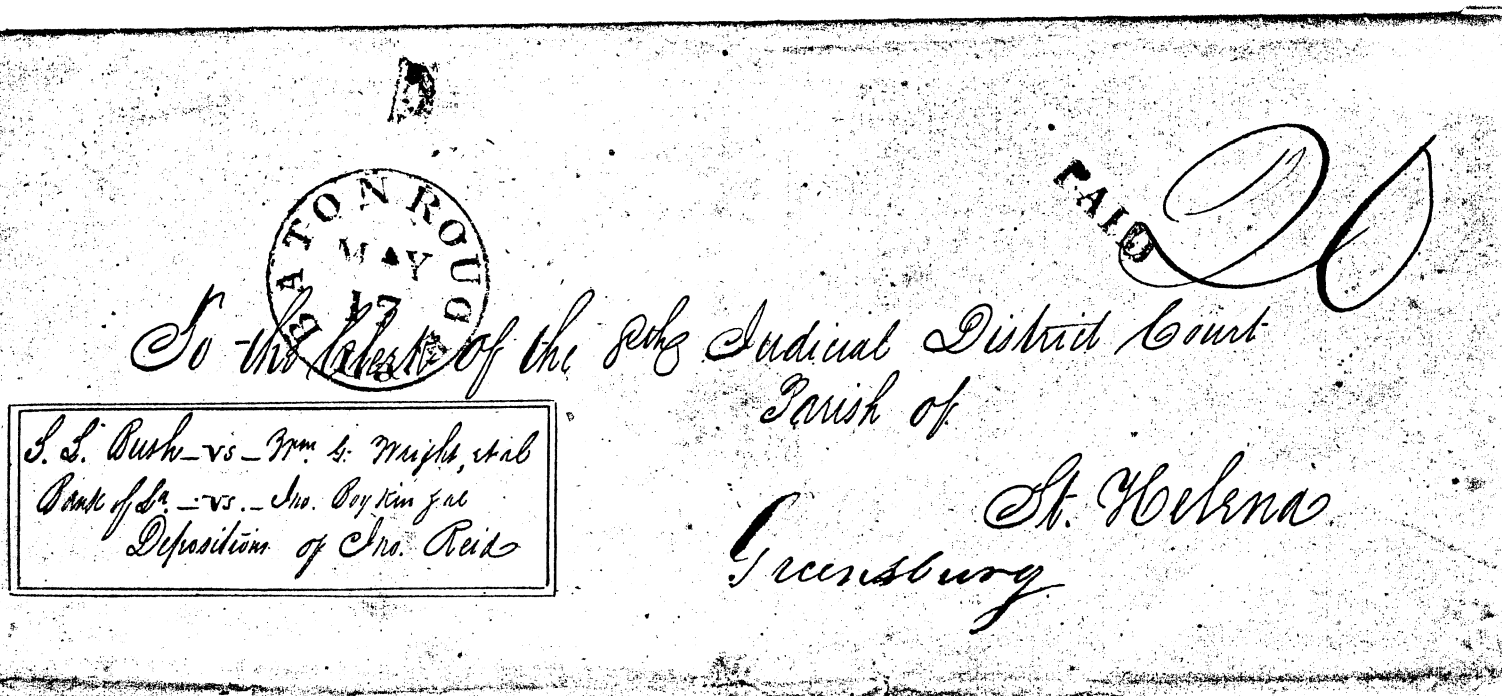 BATON ROUGE La
MAY
17
PAID
20
To the Clerk of the 8th Judicial District Court
Parish of
St. Helena
Greensburg
S. L. Bush - vs - Wm G. Wright, et al
Bank of La. - vs. - Jno. Boykin & al
Depositions of Jno. Reid